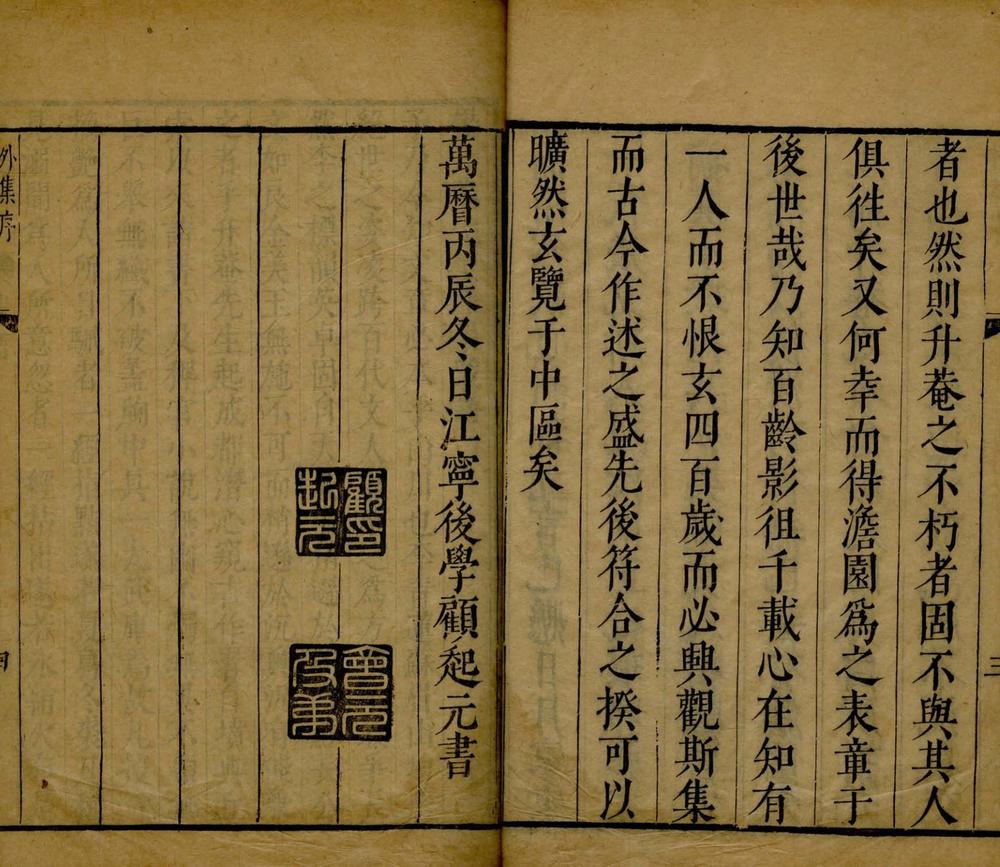 者也然則升菴之不朽者固不與其人
俱徃矣又何幸而得澹園爲之表章于
後世哉乃知百齡影徂千載心在知有
一人而不恨玄四百歲而必興觀斯集
而古今作述之盛先後符合之揆可以
曠然玄覽于中區矣
萬曆丙辰冬日江寧後學顧起元書
顧印
起元
會元
及弟
外集序
三
四